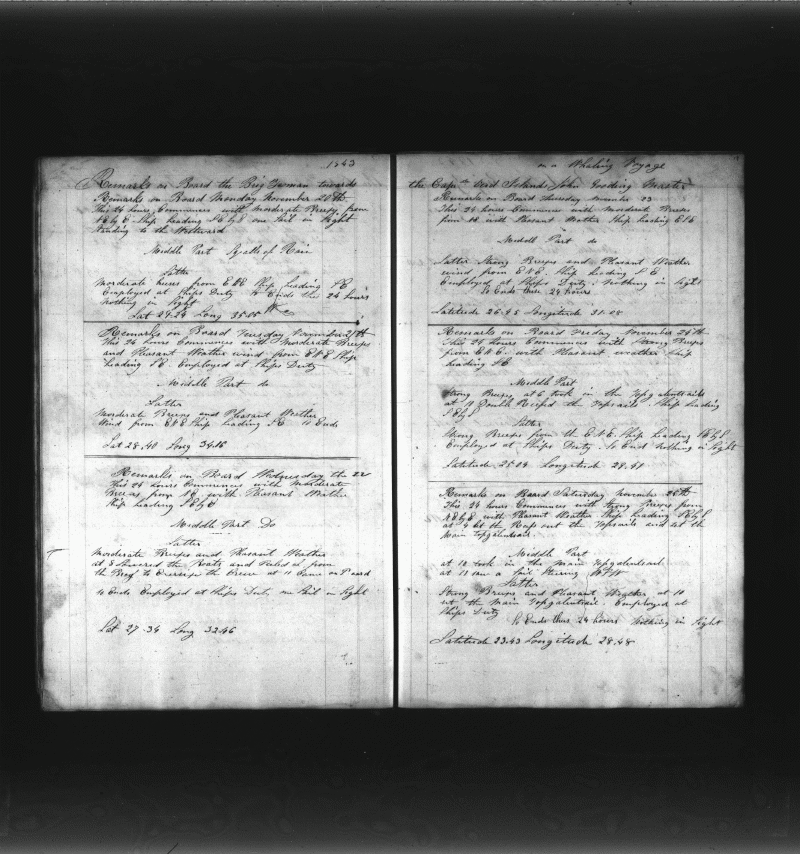 1843
Remarks on Board the Brig Truman towards
Remarks on Board Monday November 20th
This 24 hours Commences with Morderate Breeps from
Ship heading one Sail in Sight
Standing to the Westward
Middle Part Squalls of Rain
Latter
Morderate from ENE Ship heading SE
Employed at Ships Duty So Ends this 24 hours
Nothing in Sight
Lat 29.24 Long 35.05
Remarks on Board Tuesday November 21th
This 24 hours Commences with Moderate Breeps
and Pleasant Weather wind from ENE Ship
heading SE. Employed at Ships Duty
Middle Part do
Latter
Morderate Breeps and Pleasant Weather
Wind from ENE Ship heading SE So Ends
Lat 28.40 Long 34.16
Remarks on Board Wednesday the 22
This 24 hours Commences with Morderate
from SE with Pleasant Weather
Ship heading
Middle Part Do
Latter
Morderate Breeps and Pleasant Weather
at 8 the Boats and from
the to the at on Board
So Ends Employed at Ships Duty one Sail in Sight
Lat 27.34 Long 32.46
on a Whaling Voyage
the Cape Verd Islands John Master
Remarks on Board Thursday November 23
This 24 hours Commences with Morderate Breeps
from with Pleasant Weather Ship heading
Middle Part do
Latter Strong Breeps and Pleasant Weather
wind from ENE. Ship heading SE
Employed at Ships Duty. Nothing in Sight
So Ends this 24 hours
Latitude 26.45 Longitude 31.08
Remarks on Board Friday November 24th
This 24 hours Commences with Strong Breeps
from ENE. with Pleasant weather Ship
heading SE
Middle Part
Strong Breeps at 6 took in the topgalentsails
at Double Reefed the topsails Ship heading
SEbyS
Latter
Strong Breeps from the ENE Ship heading SEbyS
Employed at Ships Duty. So Ends Nothing in Sight
Latitude 25.04 Longitude 29.41
Remarks on Board Saturday November 25th
This 24 hours Commences with Strong Breeps from
with Pleasant Weather Ship heading SEbyS
at 4 let the Reef out the topsails and set the
Main topgalentsail.
Middle Part
at 10 took in the Main topgalentsail
at 11 saw a Sail Stearing
Latter
Strong Breeps and Pleasant Weather at 10
set the Main topgalentsail. Employed at
Ships Duty
So Ends this 24 hours Nothing in Sight
Latitude 23.43 Longitude 28.48